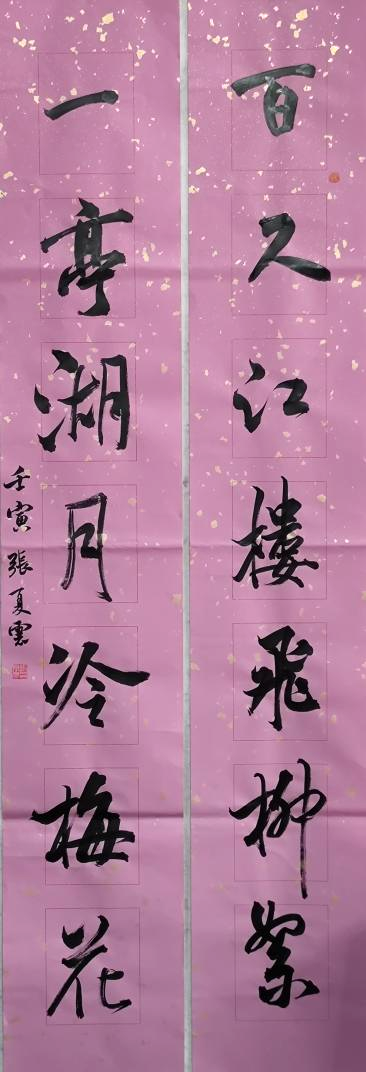 百尺江樓飛柳絮
一亭湖月冷梅花
壬寅張夏雲